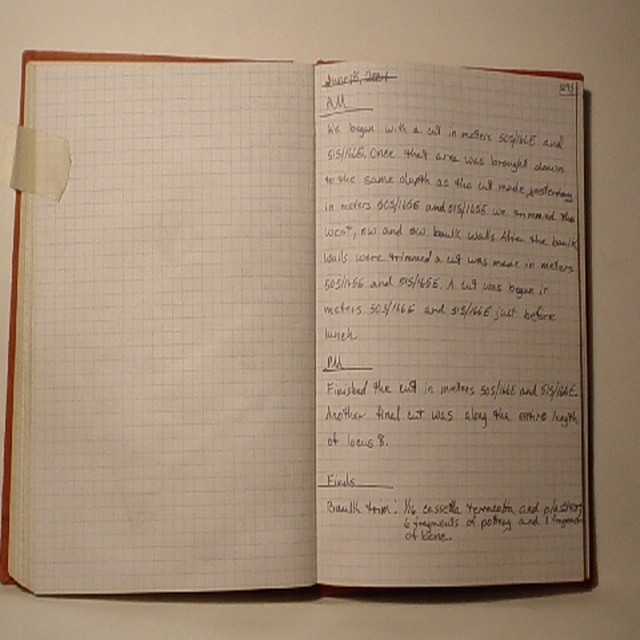 June 13, 2001
AM
We began with a cut in meters 50S/166E and
51S/166E. Once that area was brought down
to the same depth as the cut made yesterday
in meters 50S/165E and 51S/165E we trimmed the
west, NW and SW baulk walls. After the baulk
walls were trimmed a cut was made in meters
50S/165E and 51S/165E. A cut was began in
meters 50S/166E and 51S/166E just before
lunch.
PM
Finished the cut in meters 50S/166E and 51S/166E.
Another final cut was along the entire length
of locus 8.
Finds
Baulk trim: 1/16 cassetta terracotta and plaster,
6 fragments of pottery and 1 fragment
of bone.